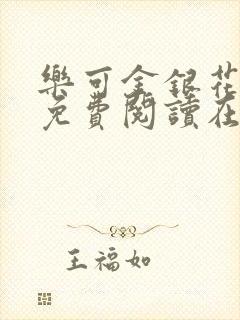 樂可金銀花
免費閱讀在
王福如